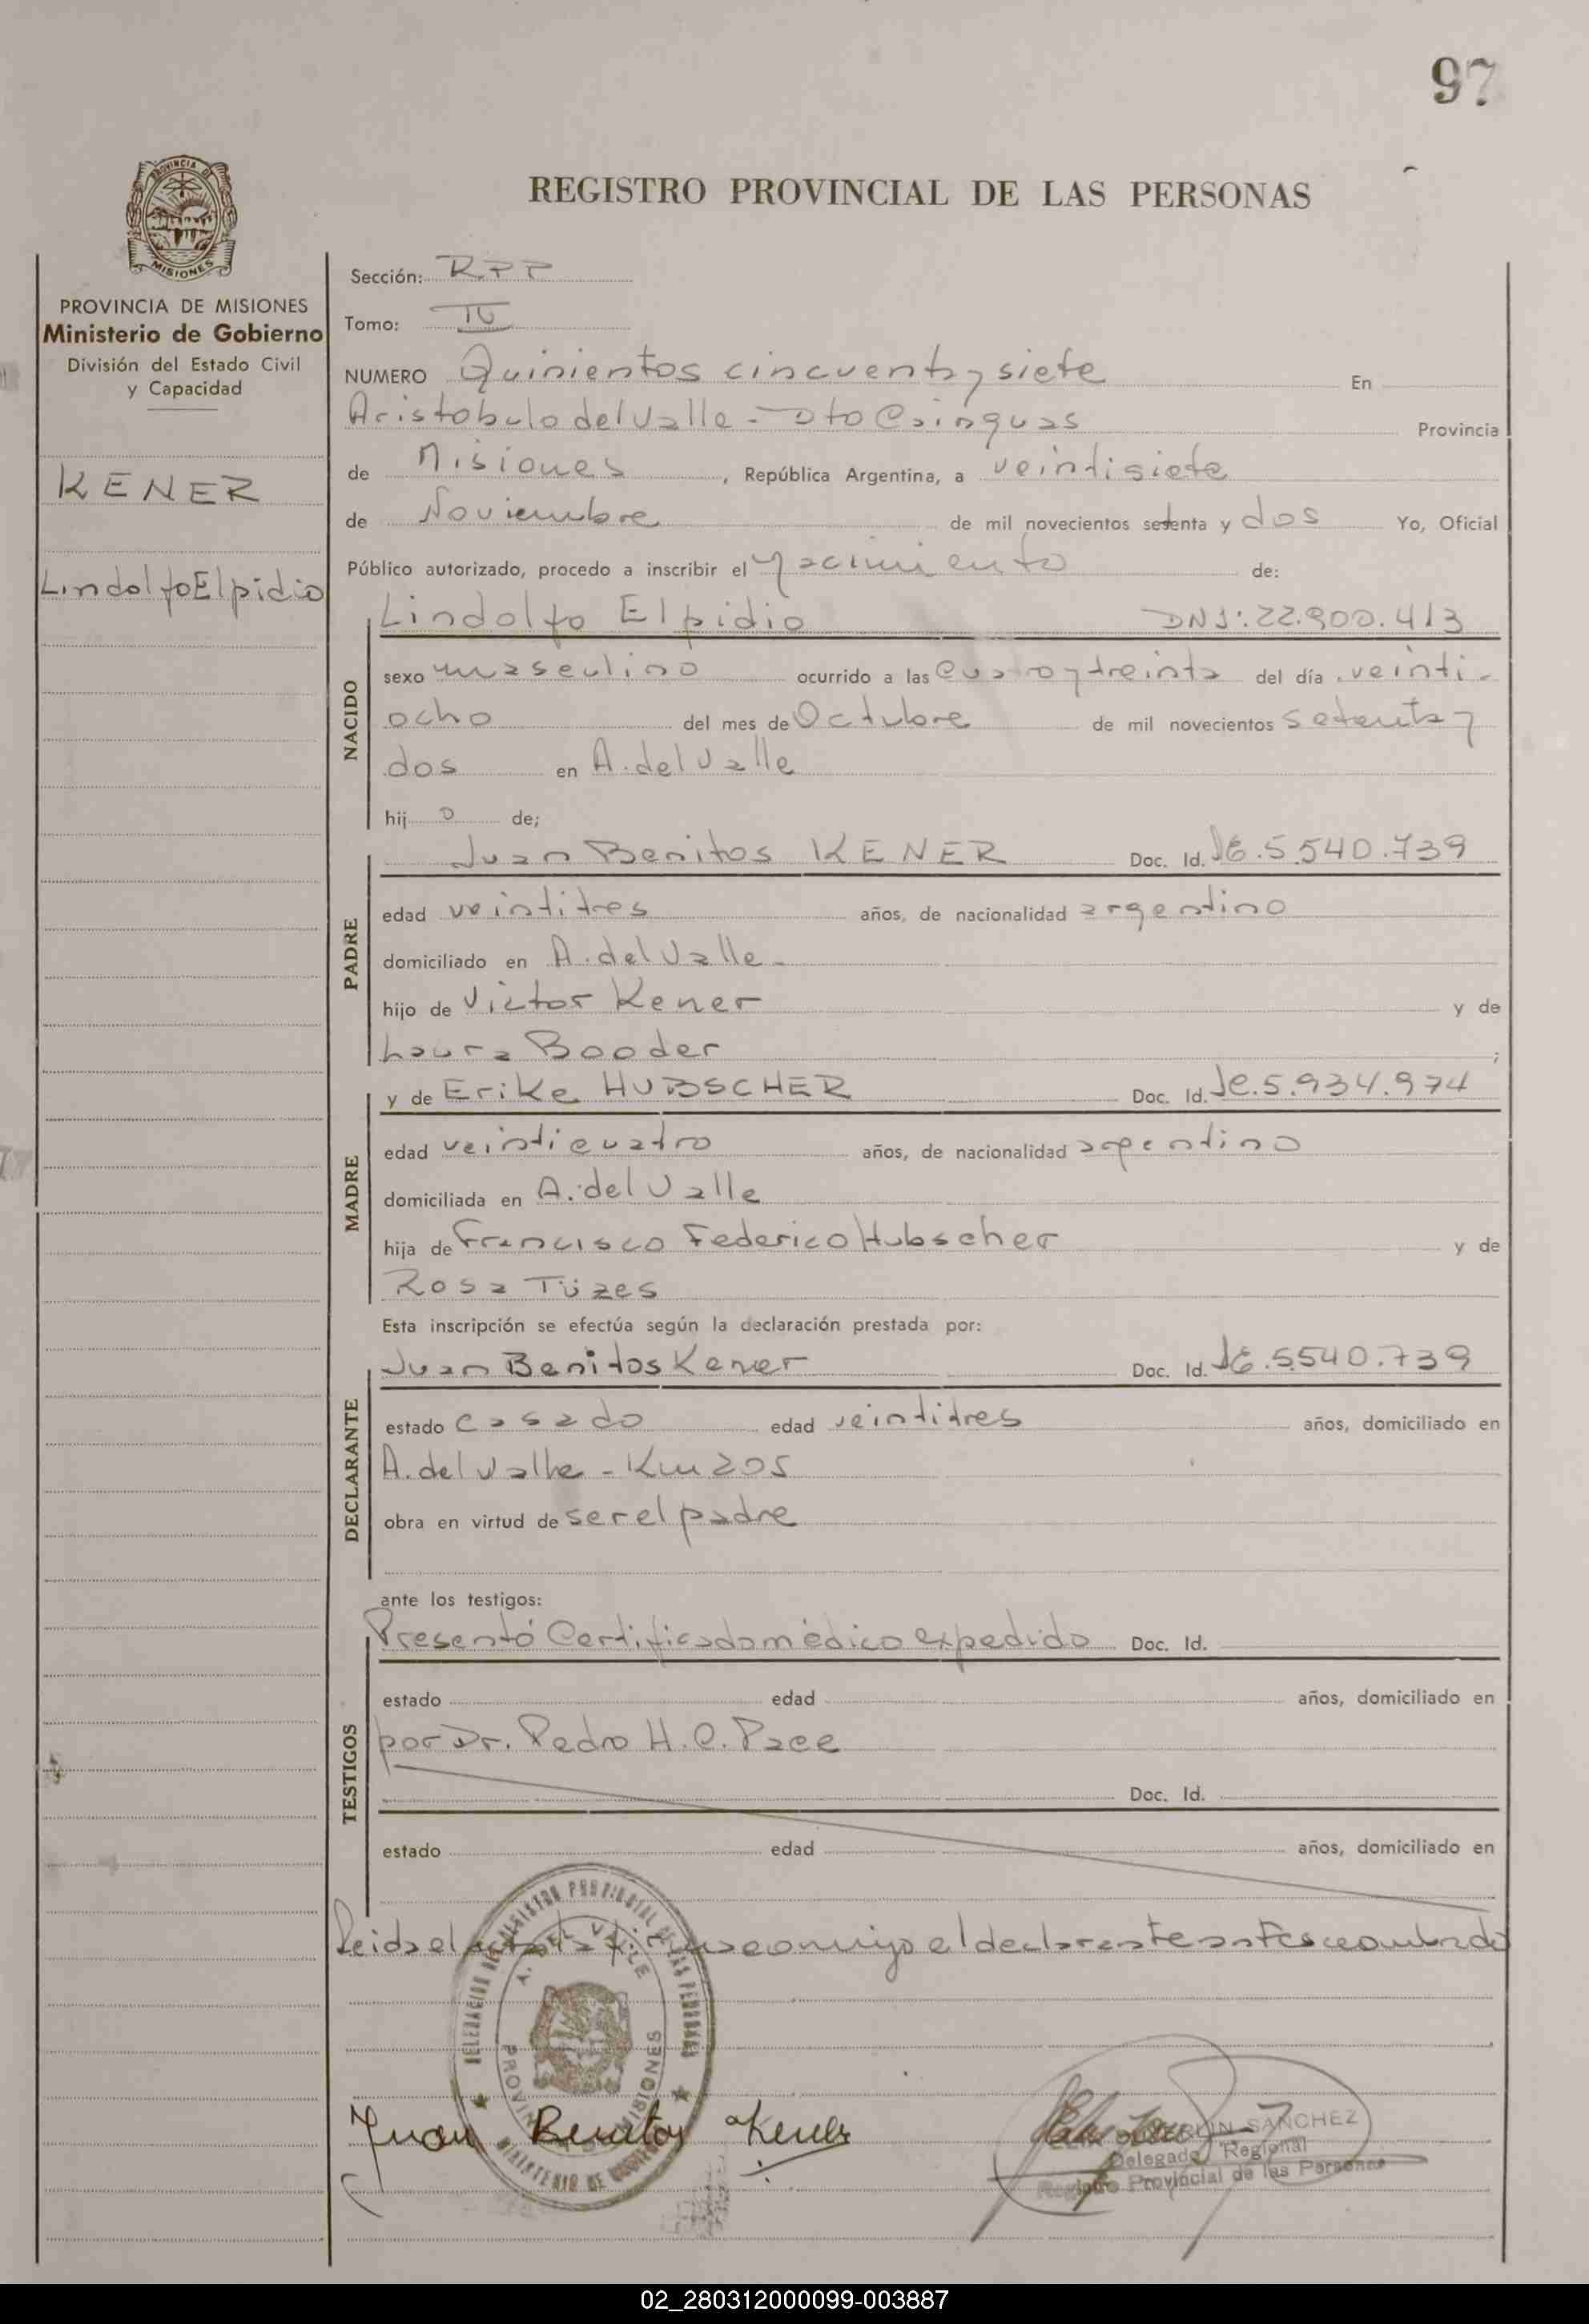 97
PROVINCIA DE
MISIONES
REGISTRO PROVINCIAL DE LAS PERSONAS
PROVINCIA DE MISIONES
Ministerio de Gobierno
División del Estado Civil
y Capacidad
KENER
Lindolfo Elpidio
Sección: RPP
Tomo: IV
NUMERO Quinientos cincuenta y siete En
Aristobulo del Valle - Dto Cainguas Provincia
de Misiones, República Argentina, a veintisiete
de Noviembre de mil novecientos setenta y dos Yo, Oficial
Público autorizado, procedo a inscribir el nacimiento de:
NACIDO
Lindolfo Elpidio DNI: 22.900.413
sexo masculino ocurrido a las cuatro y treinta del día veinti-
ocho del mes de Octubre de mil novecientos setenta y
dos en A. del Valle
hij o de;
PADRE
Juan Benitos KENER Doc. Id. 5.540.739
edad veintitres años, de nacionalidad argentino
domiciliado en A. del Valle -
hijo de Victor Kener y de
Laura Booder ;
MADRE
y de Erike HUBSCHER Doc. Id. 5.934.974
edad veinticuatro años, de nacionalidad argentino
domiciliada en A. del Valle
hija de Francisco Federico Hubscher y de
Rosa Tüzes
Esta inscripción se efectúa según la declaración prestada por:
DECLARANTE
Juan Benitos Kener Doc. Id. 5.540.739
estado casado edad veintitres años, domiciliado en
A. del Valle - Km 205
obra en virtud de ser el padre
ante los testigos:
TESTIGOS
Presentó Certificado médico expedido Doc. Id.
estado edad años, domiciliado en
por Dr. Pedro H. C. Pace
Doc. Id.
estado edad años, domiciliado en
Leida el acta la firma conmigo el declarante antes nombrado
DELEGACION DE REGISTRO PROVINCIAL DE LAS PERSONAS
A. DEL VALLE
PROVINCIA DE MISIONES
MINISTERIO DE
Juan Benitos Kener
SANCHEZ
Delegado Regional
Registro Provincial de las Personas
02_280312000099-003887